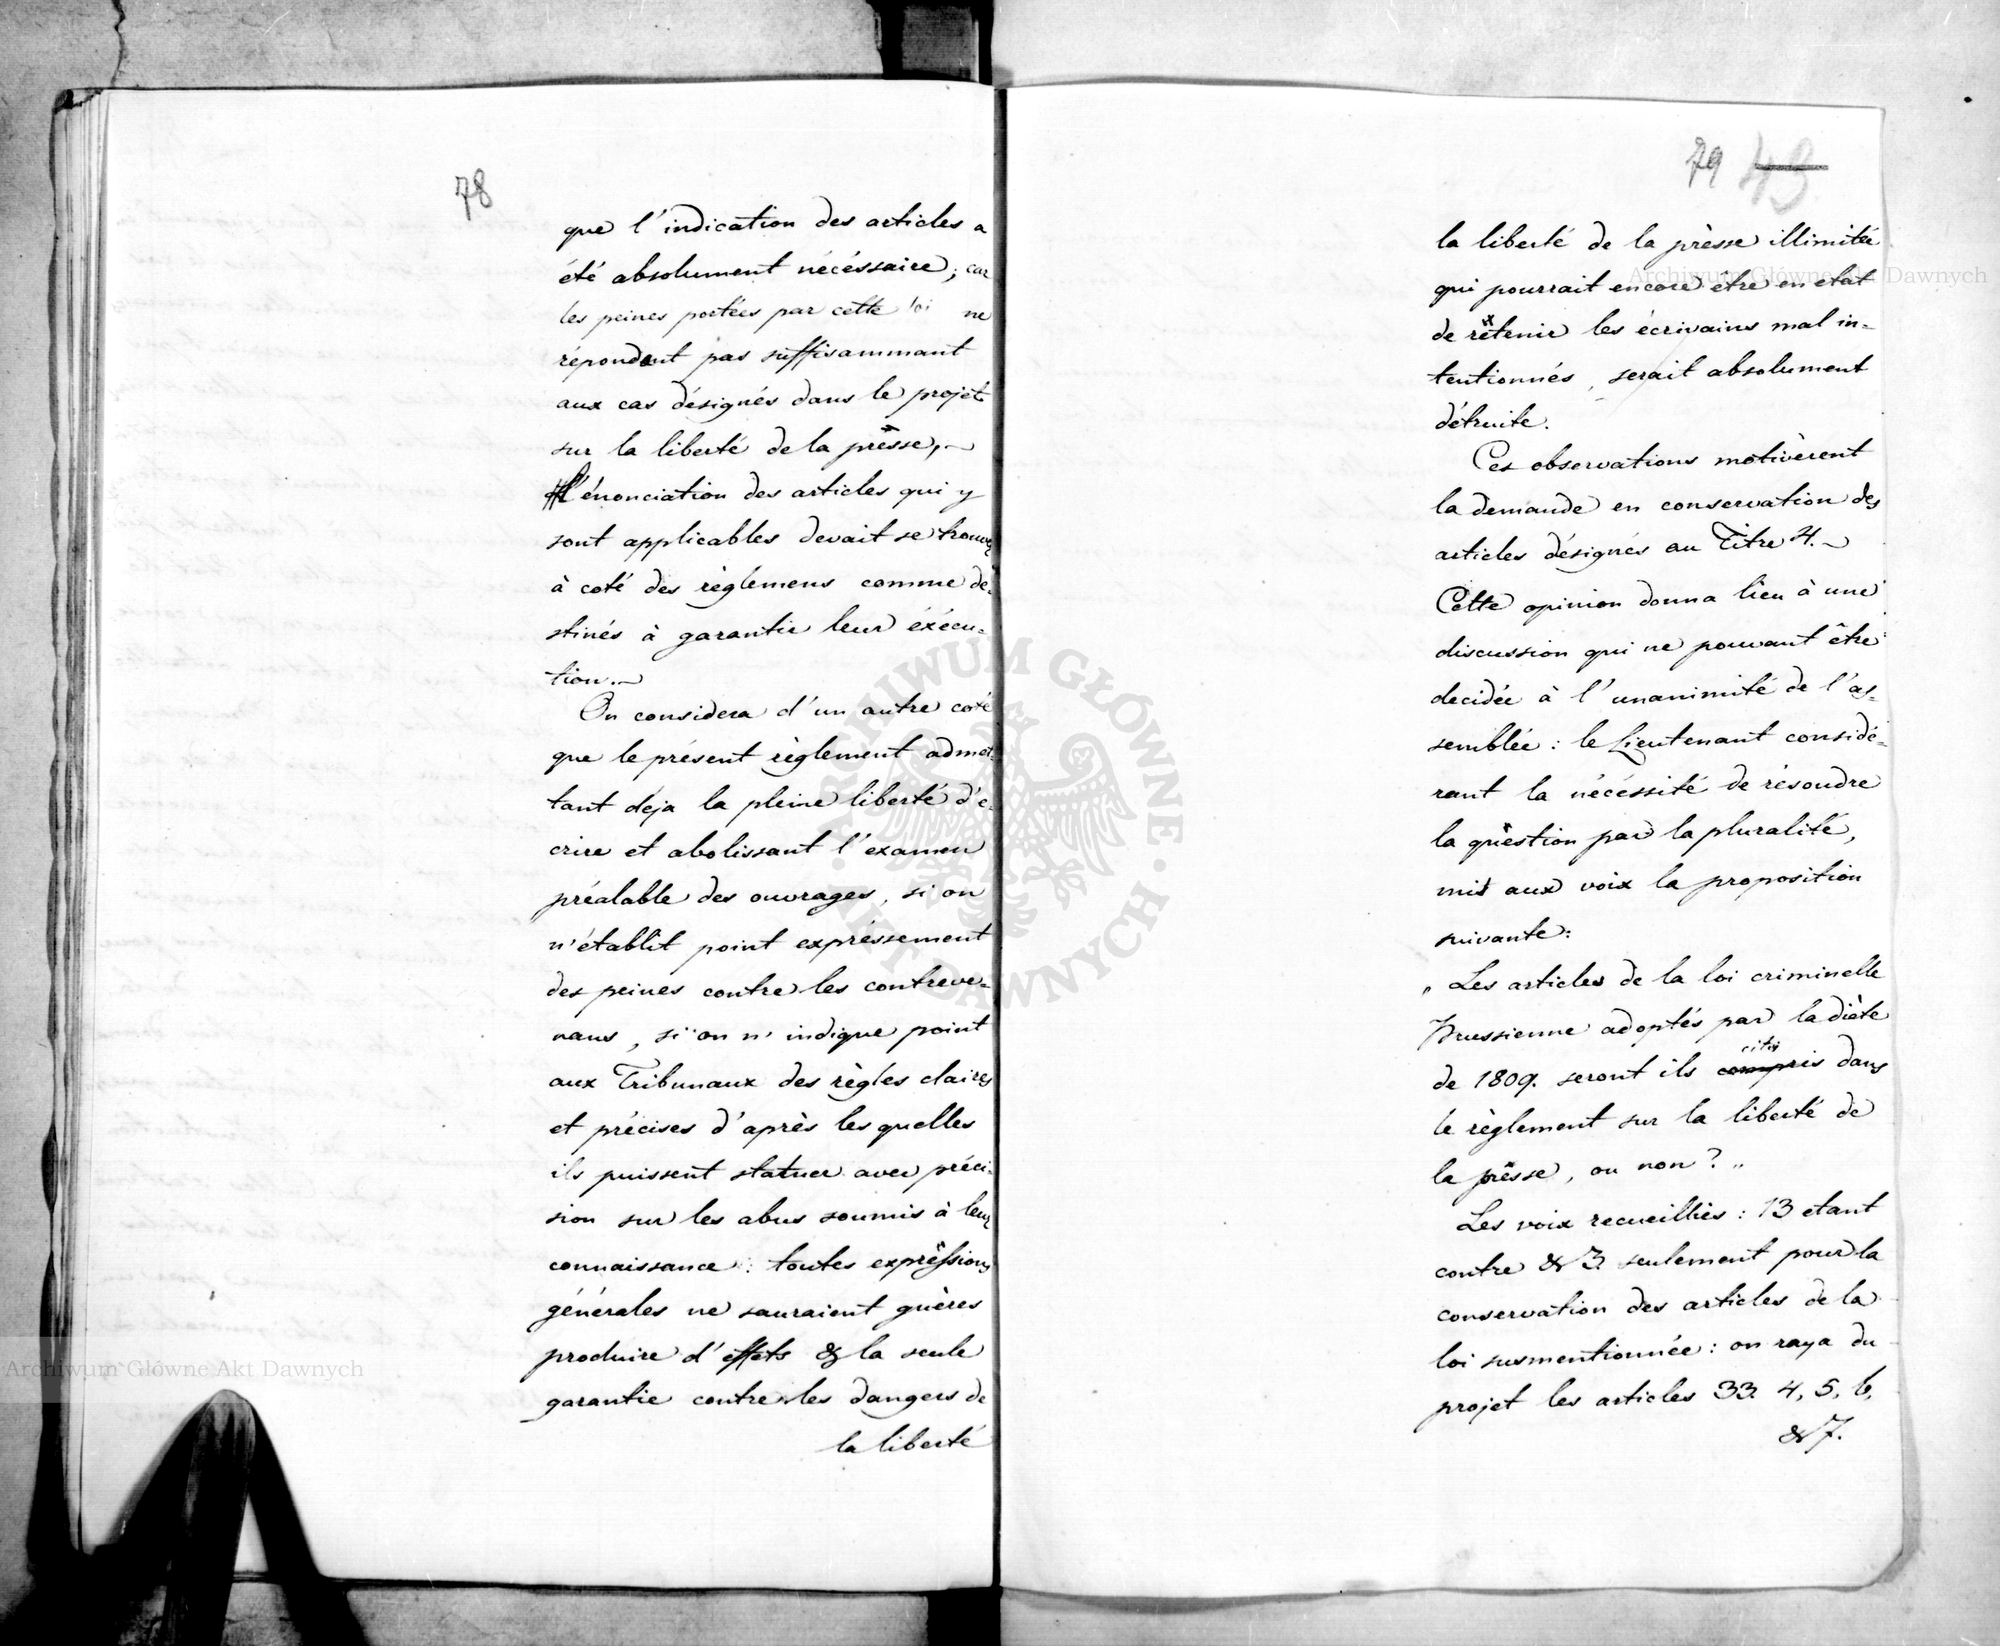 78
que l'indication des articles a
été absolument nécéssaire; car
les peines portées par cette loi ne
répondent pas suffisammant
aux cas désignés dans le projet
sur la liberté de la prèsse,
l'énonciation des articles qui y
sont applicables devait se trouver
à coté des règlemens comme de-
stinés à garantir leur éxécu-
tion.
On considera d'un autre coté
que le présent règlement admet-
tant déja la pleine liberté d'é-
crire et abolissant l'examen
préalable des ouvrages, si on
n'établit point expréssement
des peines contre les contreve-
nans, si on n'indique point
aux Tribunaux des règles claires
et précises d'après les quelles
ils puissent statuer avec préci-
sion sur les abus soumis à leur
connaissance: toutes expréssions
générales ne sauraient guères
produire d'effets & la seule
garantie contre les dangers de
la liberté
79 43
la liberté de la prèsse illimitée
qui pourrait encore etre en etat
de retenir les écrivains mal in-
tentionnés, serait absolument
détruite.
Ces observations motivèrent
la demande en conservation des
articles désignés au Titre 4.
Cette opinion donna lieu à une
discussion qui ne pouvant être
decidée à l'unanimité de l'as-
semblée: le Lieutenant considé-
rant la nécéssité de résoudre
la question par la pluralité,
mit aux voix la proposition
suivante:
„Les articles de la loi criminelle
Prussienne adoptés par la diète
de 1809. seront ils compris cités dans
le règlement sur la liberté de
la prèsse, ou non?"
Les voix recueilliés: 13 etant
contre & 3. seulement pour la
conservation des articles de la
loi susmentionnée: on raya du
projet les articles 33. 4, 5, 6,
& 7.
Archiwum Główne Akt Dawnych
Archiwum Główne Akt Dawnych
ARCHIWUM GŁÓWNE · AKT DAWNYCH ·